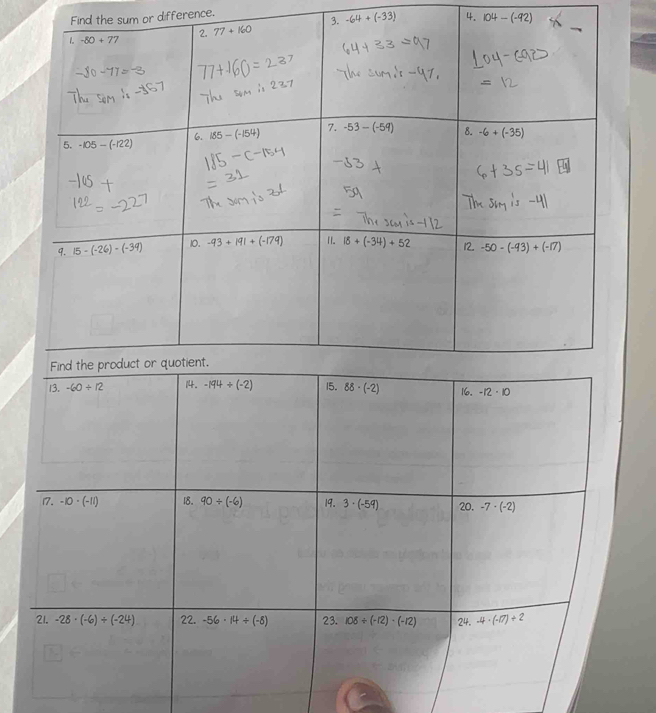 Find the sum or difference.
1. -80 + 77
-80 - 77 = -3
The sum is -157
2. 77 + 160
77 + 160 = 237
The sum is 237
3. -64 + (-33)
64 + 33 = 97
The sum is -97.
4. 104 - (-92)
104 - (92)
= 12
5. -105 - (-122)
-105 +
122 = -227
6. 185 - (-154)
185 - (-154
= 31
The sum is 31
7. -53 - (-59)
-53 +
59
= The sum is -112
8. -6 + (-35)
6 + 35 = 41
The sum is -41
9. 15 - (-26) - (-39)
10. -93 + 191 + (-179)
11. 18 + (-34) + 52
12. -50 - (-93) + (-17)
Find the product or quotient.
13. -60 ÷ 12
14. -194 ÷ (-2)
15. 88 · (-2)
16. -12 · 10
17. -10 · (-11)
18. 90 ÷ (-6)
19. 3 · (-59)
20. -7 · (-2)
21. -28 · (-6) ÷ (-24)
22. -56 · 14 ÷ (-8)
23. 108 ÷ (-12) · (-12)
24. -4 · (-17) ÷ 2